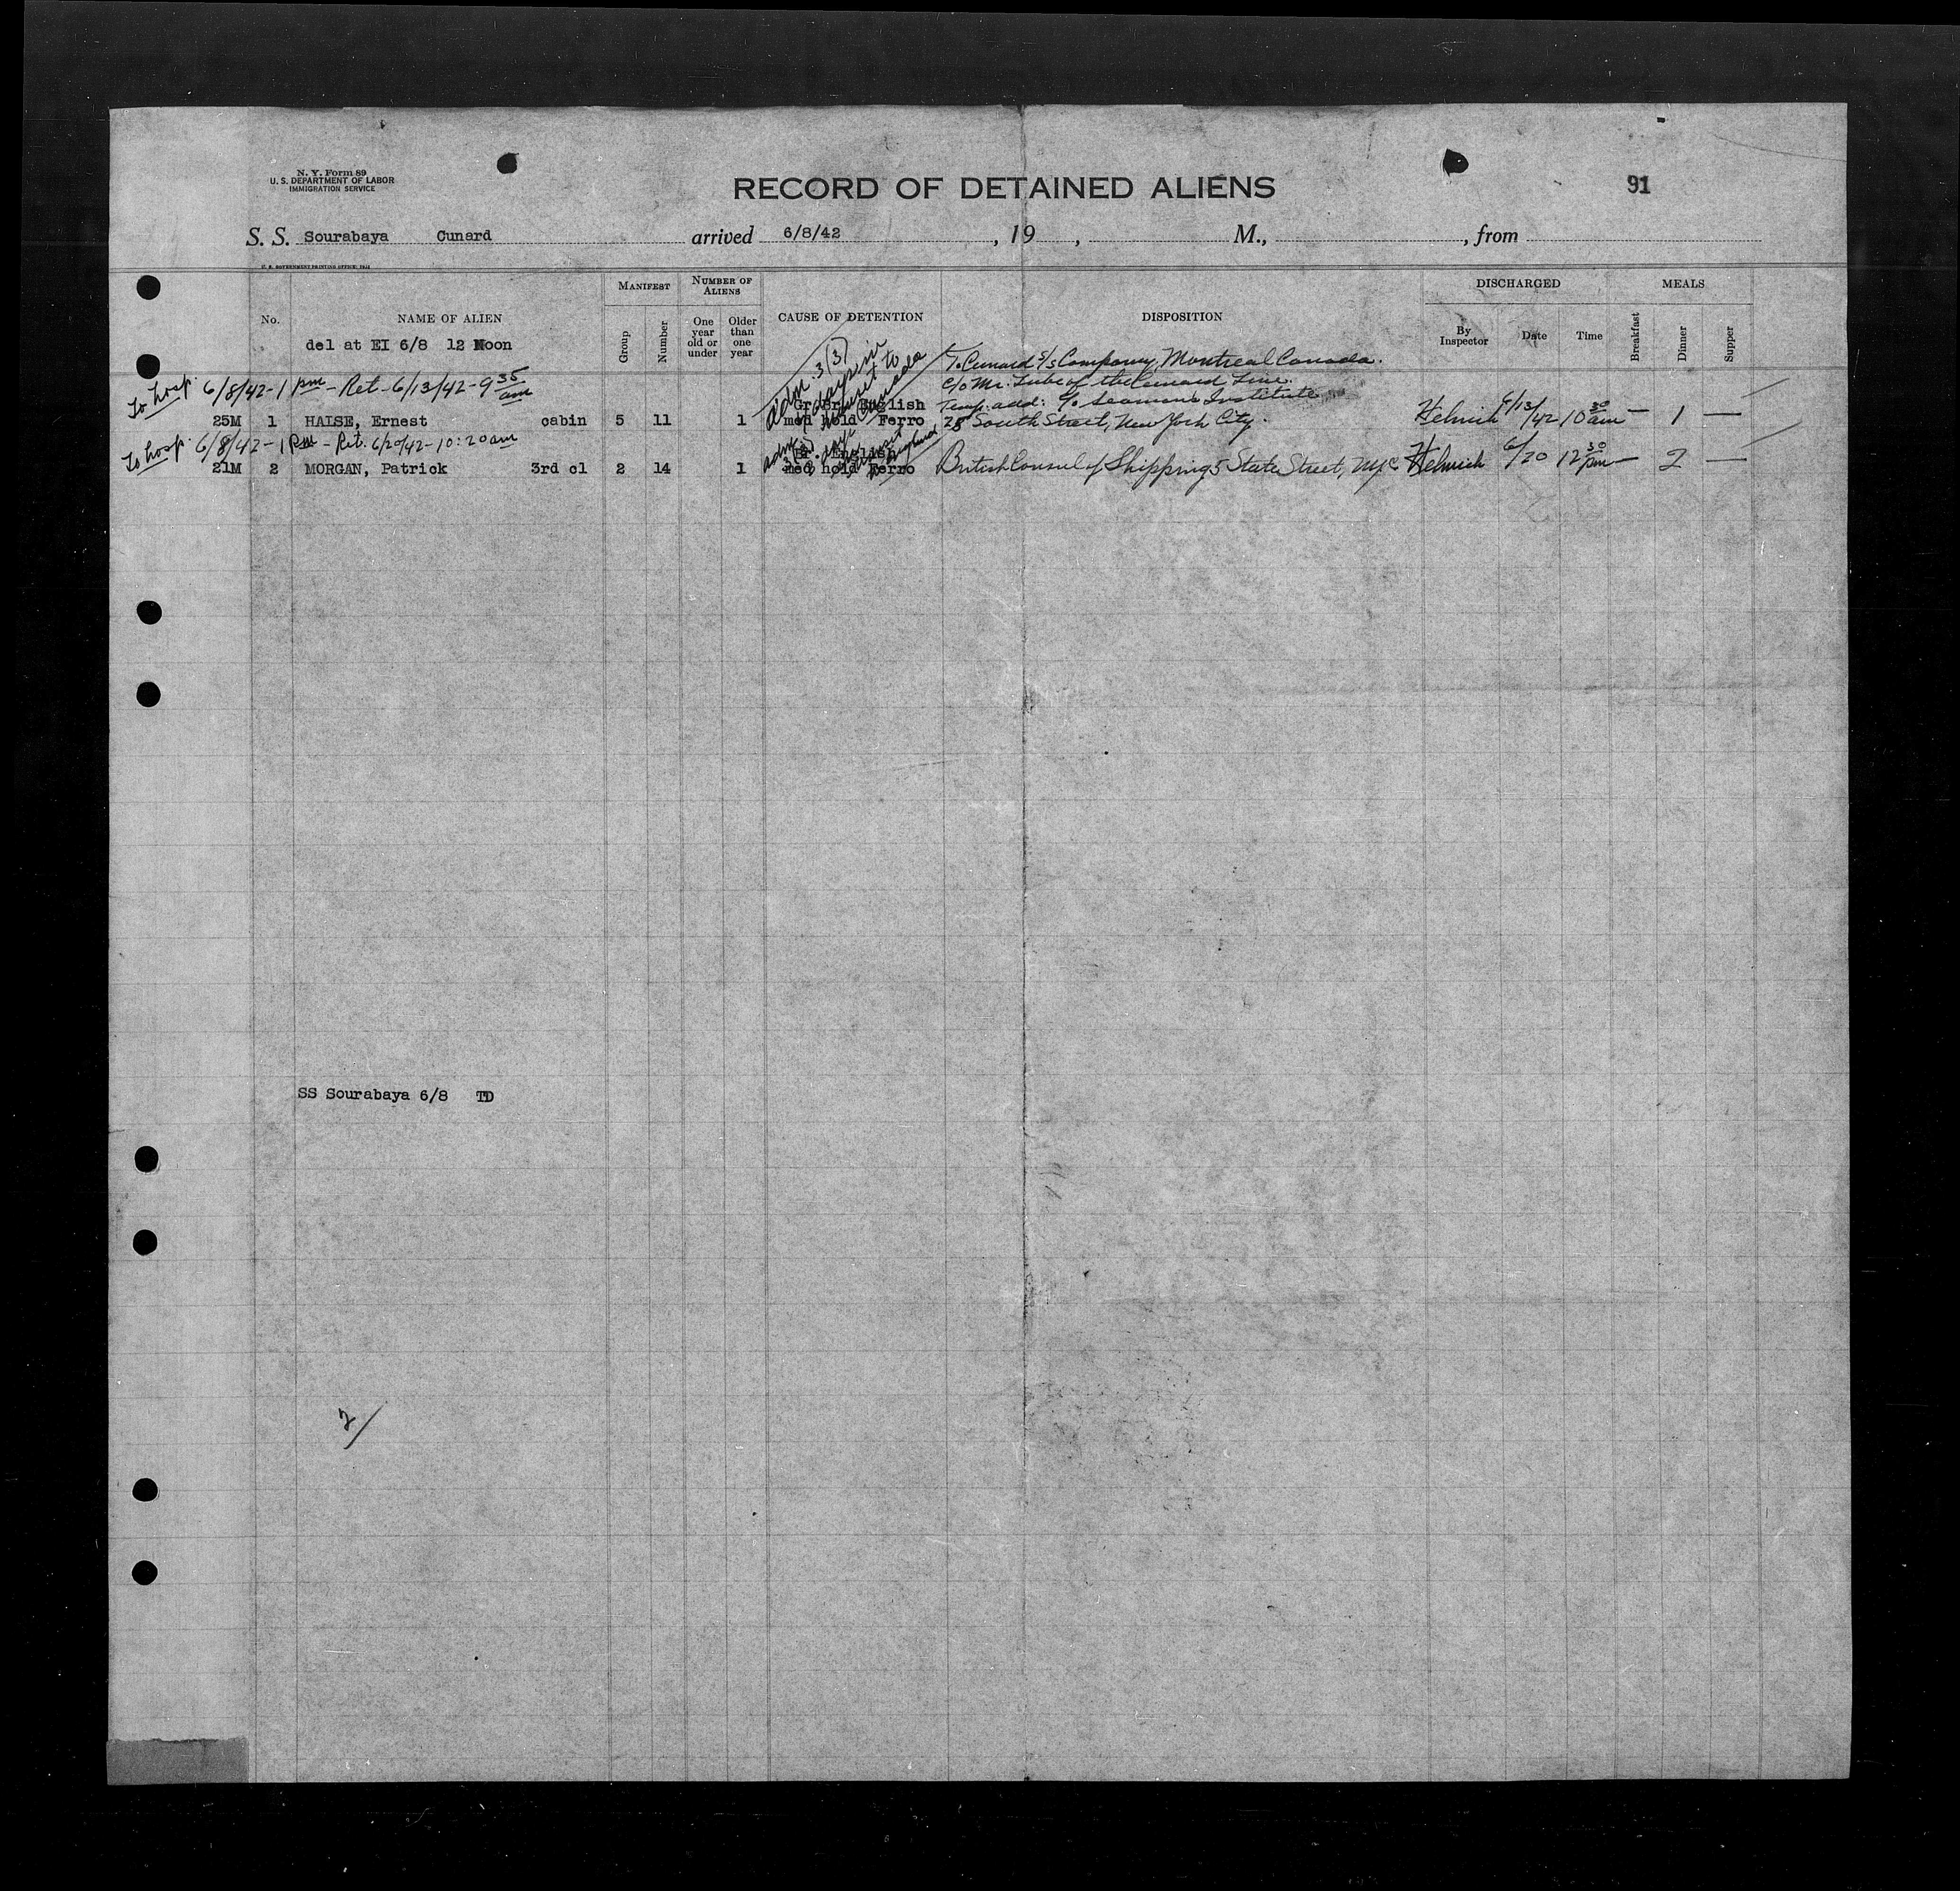 N. Y. Form 89
U. S. DEPARTMENT OF LABOR
IMMIGRATION SERVICE
RECORD OF DETAINED ALIENS
91
S. S. Sourabaya Cunard arrived 6/8/42, 19 , M., , from
U. S. GOVERNMENT PRINTING OFFICE
No.
NAME OF ALIEN
MANIFEST
Group
Number
NUMBER OF ALIENS
One year old or under
Older than one year
CAUSE OF DETENTION
DISPOSITION
DISCHARGED
By Inspector
Date
Time
MEALS
Breakfast
Dinner
Supper
del at EI 6/8 12 Noon
To hosp. 6/8/42-1 pm - Ret-6/13/42-9 35 am
25M 1 HAISE, Ernest cabin 5 11 1
adm. 3(3) days in transit to Canada
Gr.Br. English
med hold Ferro
To Cunard S/S Company, Montreal Canada.
c/o Mr. of the Cunard Line.
Temp. add: c/o Seamans Institute
28 South Street, New York City.
Helmich 6/13/42 10 30 am — 1 —
To hosp. 6/8/42-1 Pm - Ret. 6/20/42-10:20 am
21M 2 MORGAN, Patrick 3rd cl 2 14 1
Br. English
med hold Ferro
British Consul of Shipping, 5 State Street, NYC
Helmich 6/20 12 30 pm — 2 —
SS Sourabaya 6/8 TD
2/